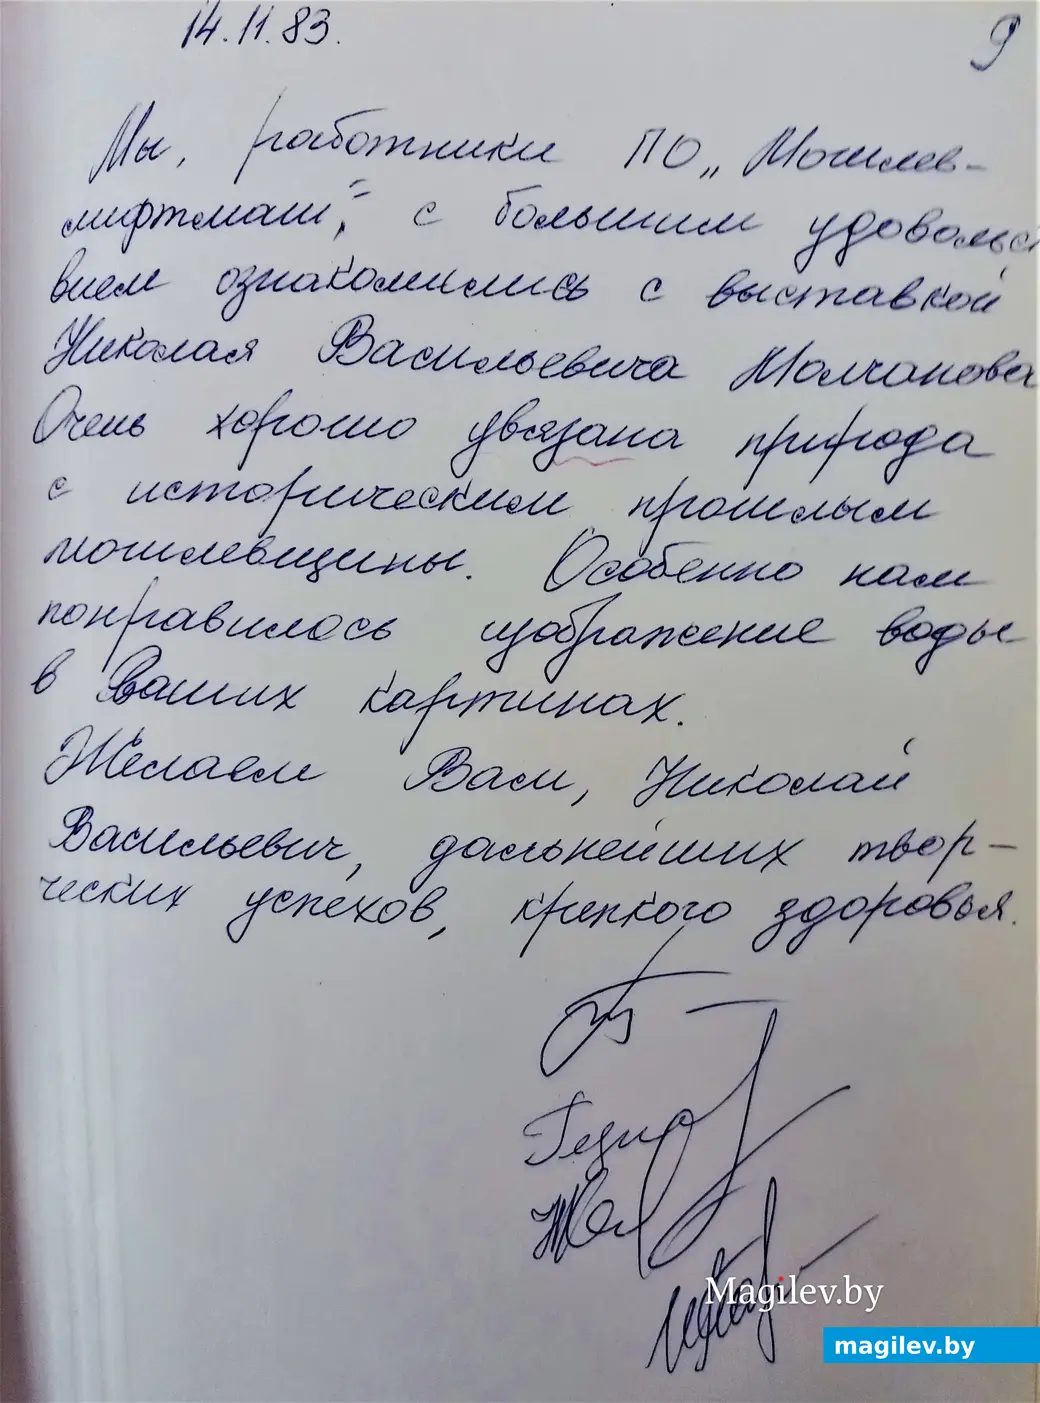 14.11.83.
9
Мы, работники ПО „Могилев-
лифтмаш", с большим удовольст
вием ознакомились с выставкой
Николая Васильевича Молчанова
Очень хорошо увязана природа
с историческим прошлым
могилевщины. Особенно нам
понравилось изображение воды
в Ваших картинах.
Желаем Вам, Николай
Васильевич, дальнейших твор-
ческих успехов, крепкого здоровья.
Magilev.by
magilev.by